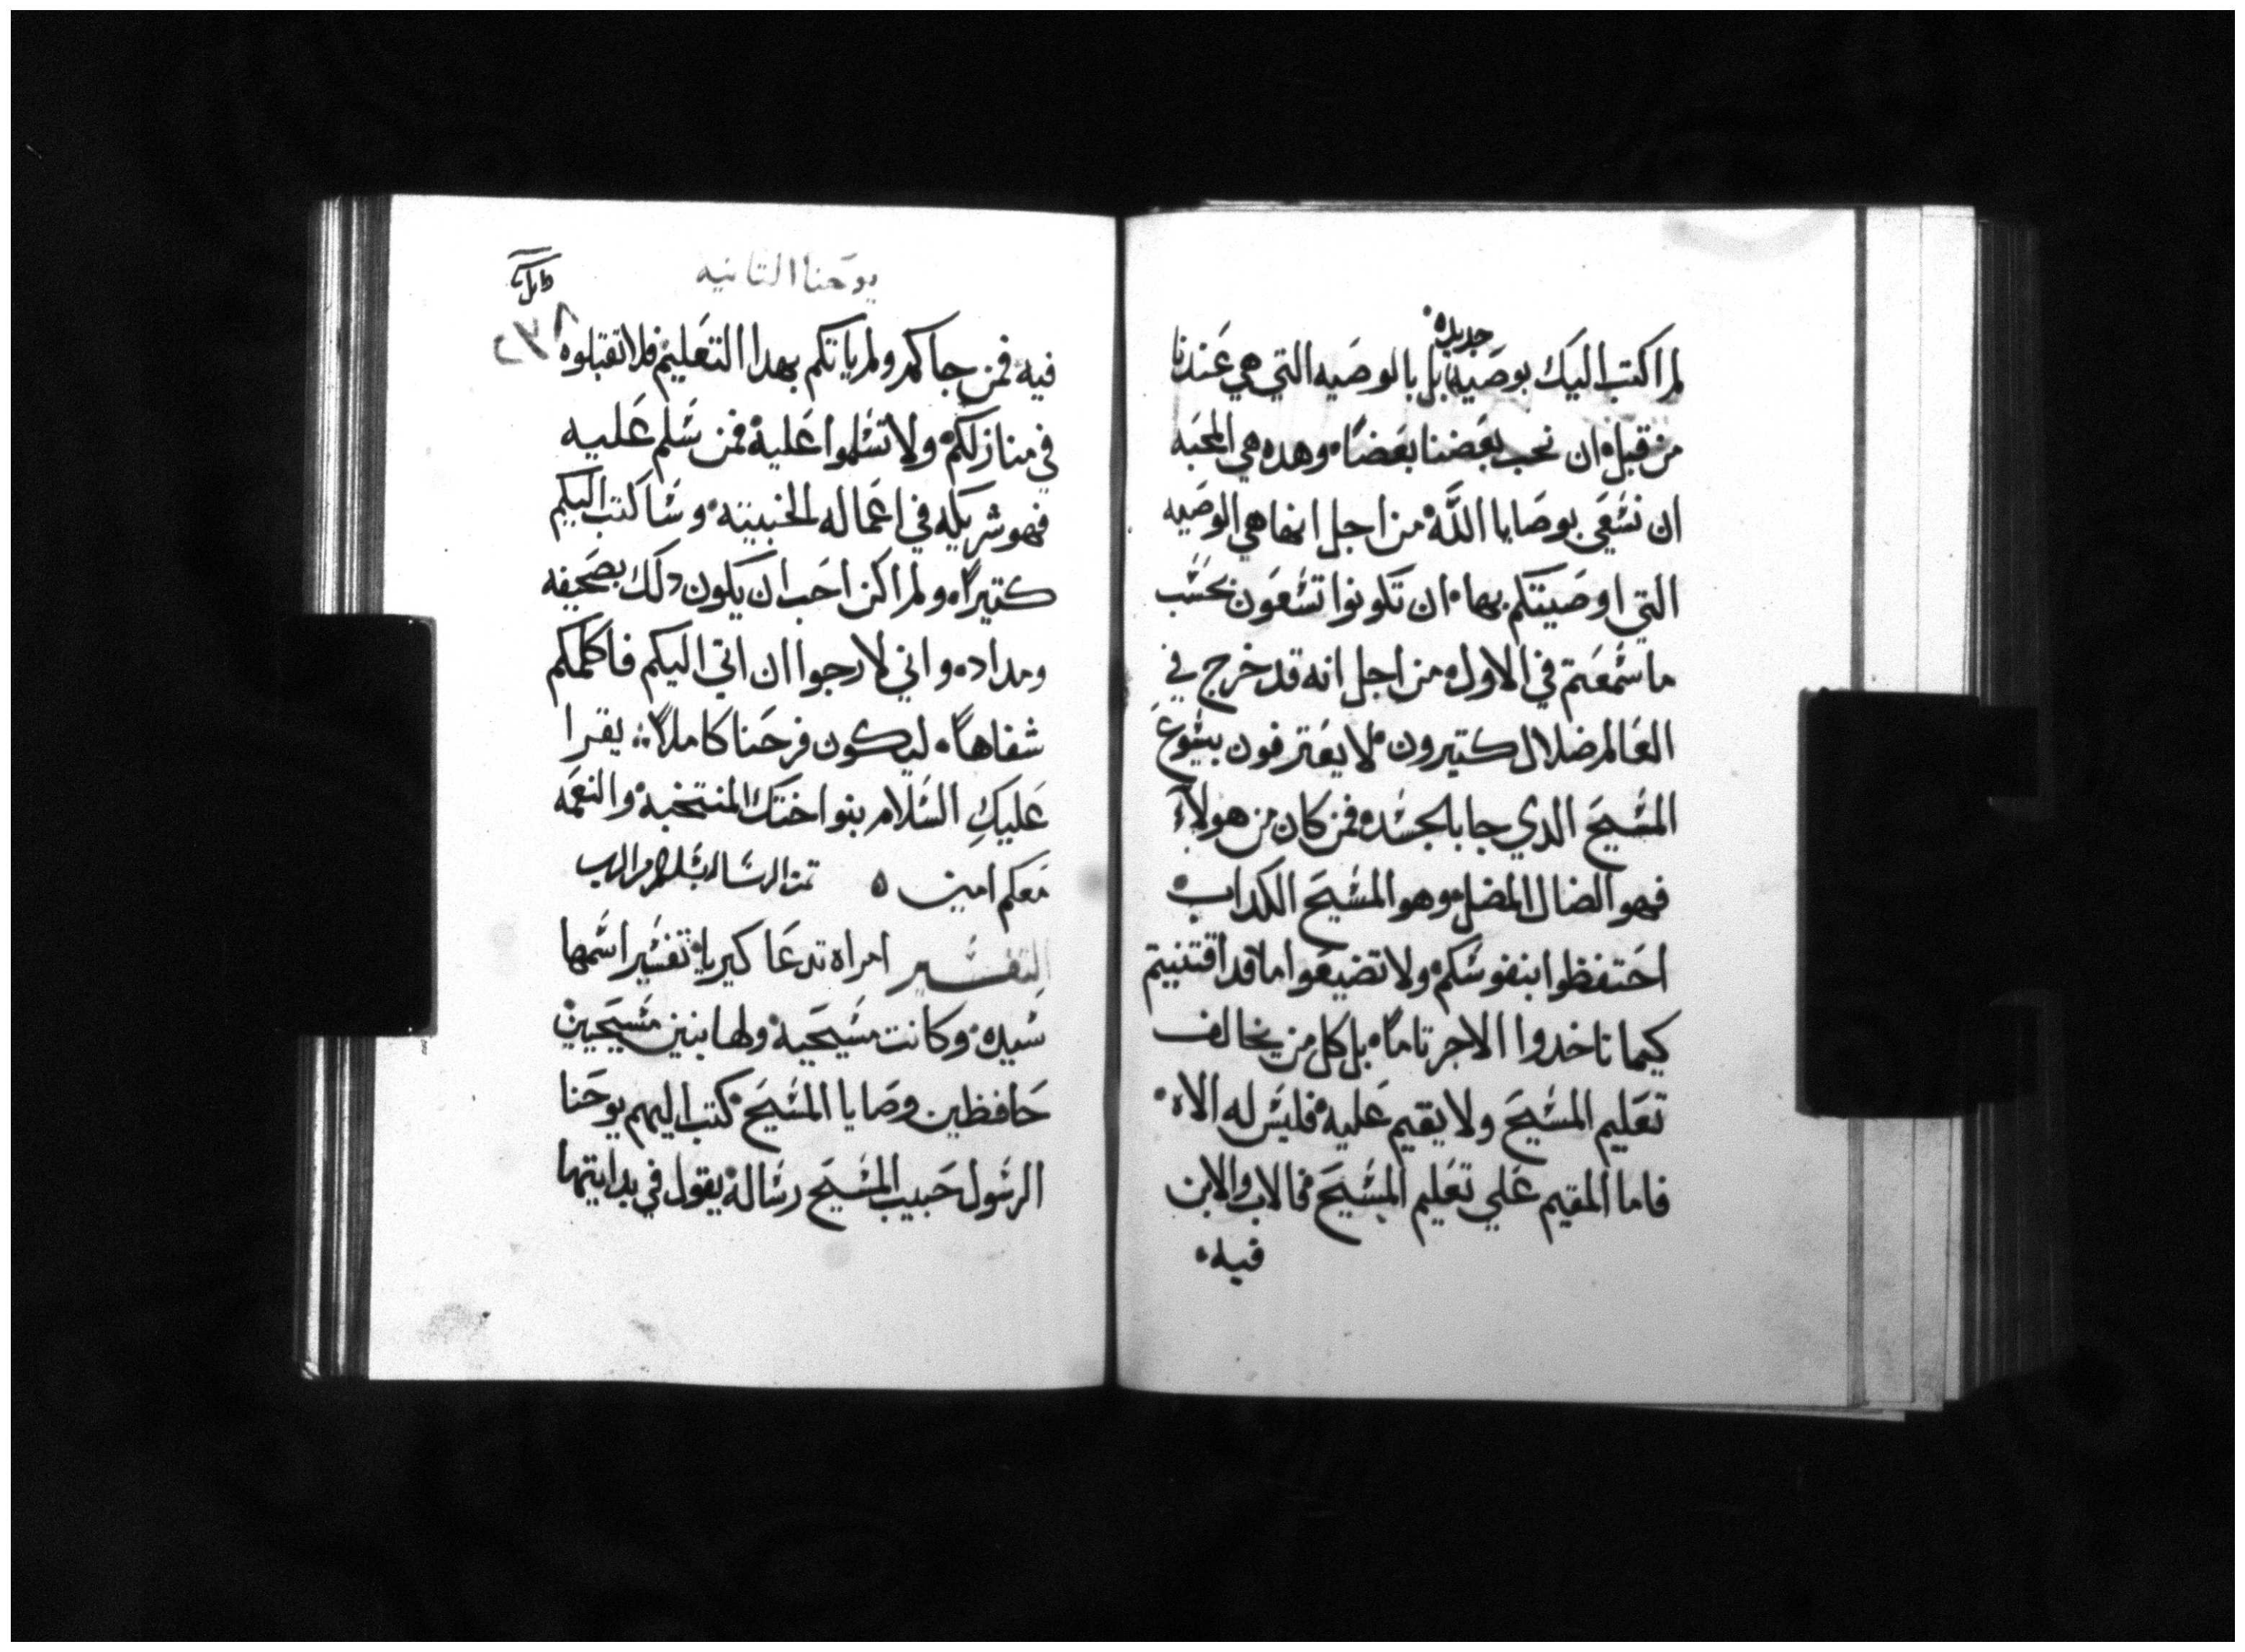 جديده
لم اكتب اليك بوصيه بل بالوصيه التي هي عندنا
من قبل ان نحب بعضنا بعضا وهده هي المحبه
ان نسعي بوصايا الله من اجل انها هي الوصيه
التي اوصيتكم بها ان تكونوا تسعون بحسب
ما سمعتم في الاول من اجل انه قد خرج في
العالم ضلال كتيرون لا يعترفون بيسوع
المسيح الدي جا بالجسد فمن كان من هولاء
فهو الضال المضل وهو المسيح الكداب
احتفظوا بنفوسكم ولا تضيعوا ما قد اقتنيتم
كيما تاخدوا الاجر تاما بل كل من يخالف
تعليم المسيح ولا يقيم عليه فليس له الاه
فاما المقيم علي تعليم المسيح فالاب والابن
فيه
يوحنا التانيه
٢٧٨
فيه فمن جاكم ولم ياتكم بهدا التعليم فلا تقبلوه
في منازلكم ولا تسلموا عليه فمن سلم عليه
فهو شريكه في اعماله الخبيته وساكتب اليكم
كتيرا ولم اكن احب ان يكون دلك بصحيفه
ومداد واني لارجوا ان اتي اليكم فاكلمكم
شفاها ليكون فرحنا كاملا يقرا
عليكِ السلام بنو اختك المنتخبه والنعمه
معكم امين تمت الرساله بسلام من الرب
التفسير امراه تدعا كيريا تفسير اسمها
سيده وكانت مسيحيه ولها بنين مسيحيين
حافظين وصايا المسيح كتب اليهم يوحنا
الرسول حبيب المسيح رساله يقول في بدايتها